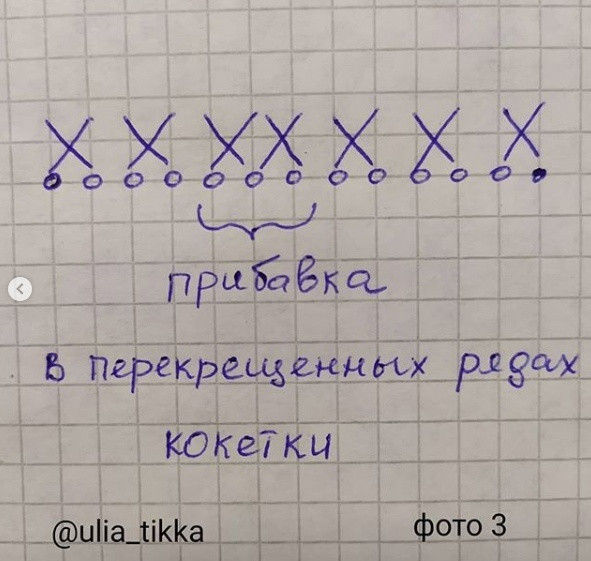 прибавка
в перекрещенных рядах
кокетки
@ulia_tikka
фото 3